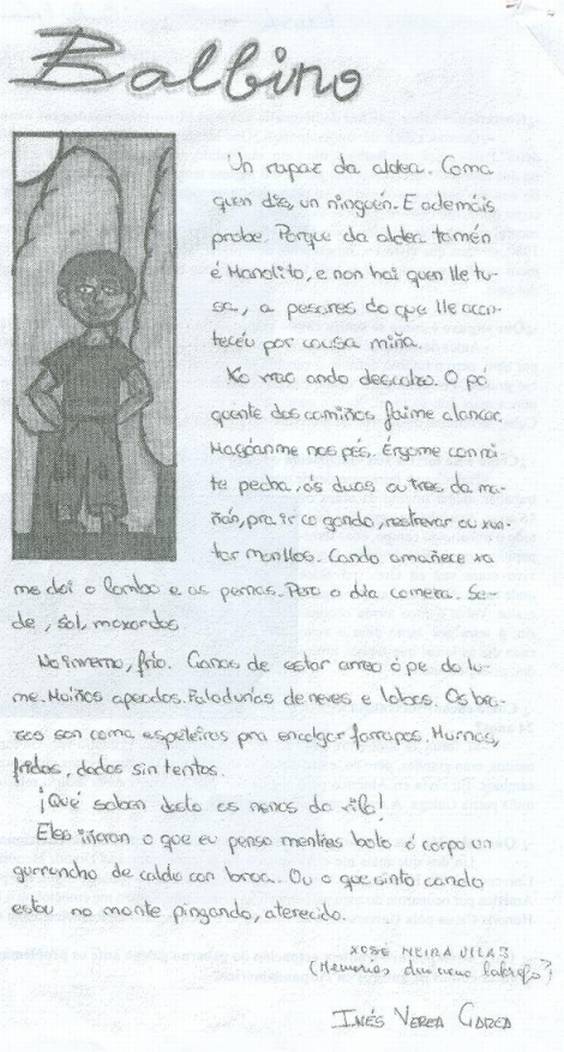 Balbino
Un rapaz da aldea. Coma
quen dis, un ninguén. E ademáis
probe. Porque da aldea tamén
é Manolito, e non hai quen lle tu-
sa, a pesares do que lle acon-
teceu por causa miña.
No vrao ando descalzo. O pó
quente dos camiños faime alancar.
Magóanme nos pés. Érgome con noi-
te pecha, ás duas ou tres da ma-
ñán, pra ir co gando, restrevar ou xun-
tar monllos. Cando amañece xa
me doi o lombo e as pernas. Pero o día comeza. Se-
de, sol, moxardos
No inverno, frío. Ganas de estar arreo ó pé do lu-
me. Moiños apeados. Faladurías de neves e lobos. Os bra-
zos son coma espeteiras pra encolgar farrapos. Murnas,
fridas, dados sin tentos.
¡Qué saben desto os nenos da vila!
Eles iñoran o que eu penso mentres boto ó corpo un
gurruncho de caldo con broa. Ou o que sinto cando
estou no monte pingando, aterecido.
XOSÉ NEIRA VILAS
(Memorias dun neno labrego)
INÉS VEREA GARCÍA